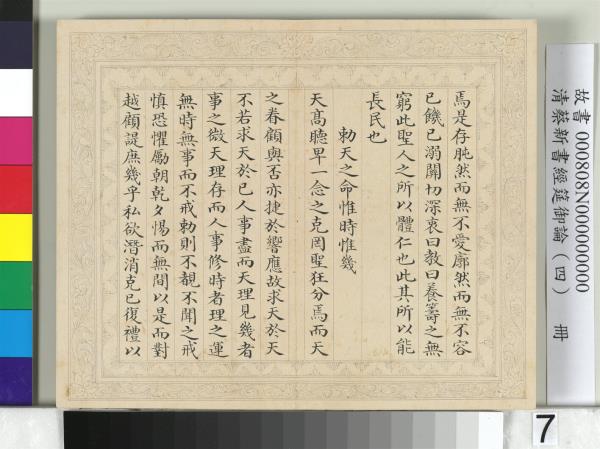 焉是存肫然而無不愛廓然而無不容
已饑已溺關切深衷曰教曰養籌之無
窮此聖人之所以體仁也此其所以能
長民也
勑天之命惟時惟幾
天高聽卑一念之克罔聖狂分焉而天
之眷顧與否亦捷於響應故求天於天
不若求天於已人事盡而天理見幾者
事之微天理存而人事修時者理之運
無時無事而不戒勅則不覩不聞之戒
慎恐懼勵朝乾夕惕而無間以是而對
越顧諟庶幾乎私欲潛消克已復禮以
故書 000808N000000000
清蔡新書經筵御論（四） 冊
7